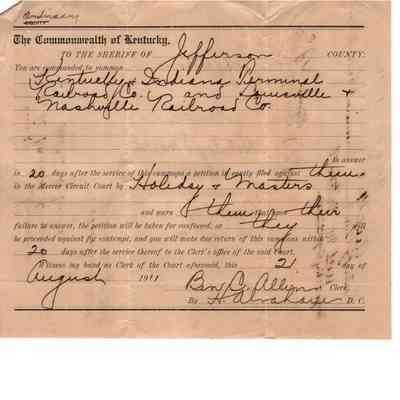 The Commonwealth of Kentucky,
TO THE SHERIFF OF Jefferson COUNTY:
You are commanded to summon
Kentucky & Indiana Terminal
Railroad Co. and Louisville &
Nashville Railroad Co.
to answer
in 20 days after the service of this summons a petition in equity filed against them
in the Mercer Circuit Court by Holiday & Masters
and warn them that upon their
failure to answer, the petition will be taken for confessed, or they will
be proceeded against for contempt, and you will make due return of this summons within
20 days after the service thereof to the Clerk's office of the said court.
Witness my hand as Clerk of the Court aforesaid, this 21 day of
August 1911 Ben C. Allin Clerk.
By D. C.